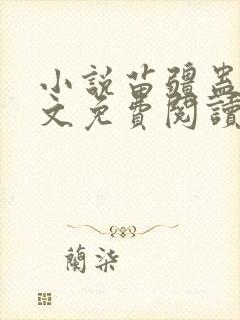 小說苗疆蠱
文免費閱讀
蘭柒